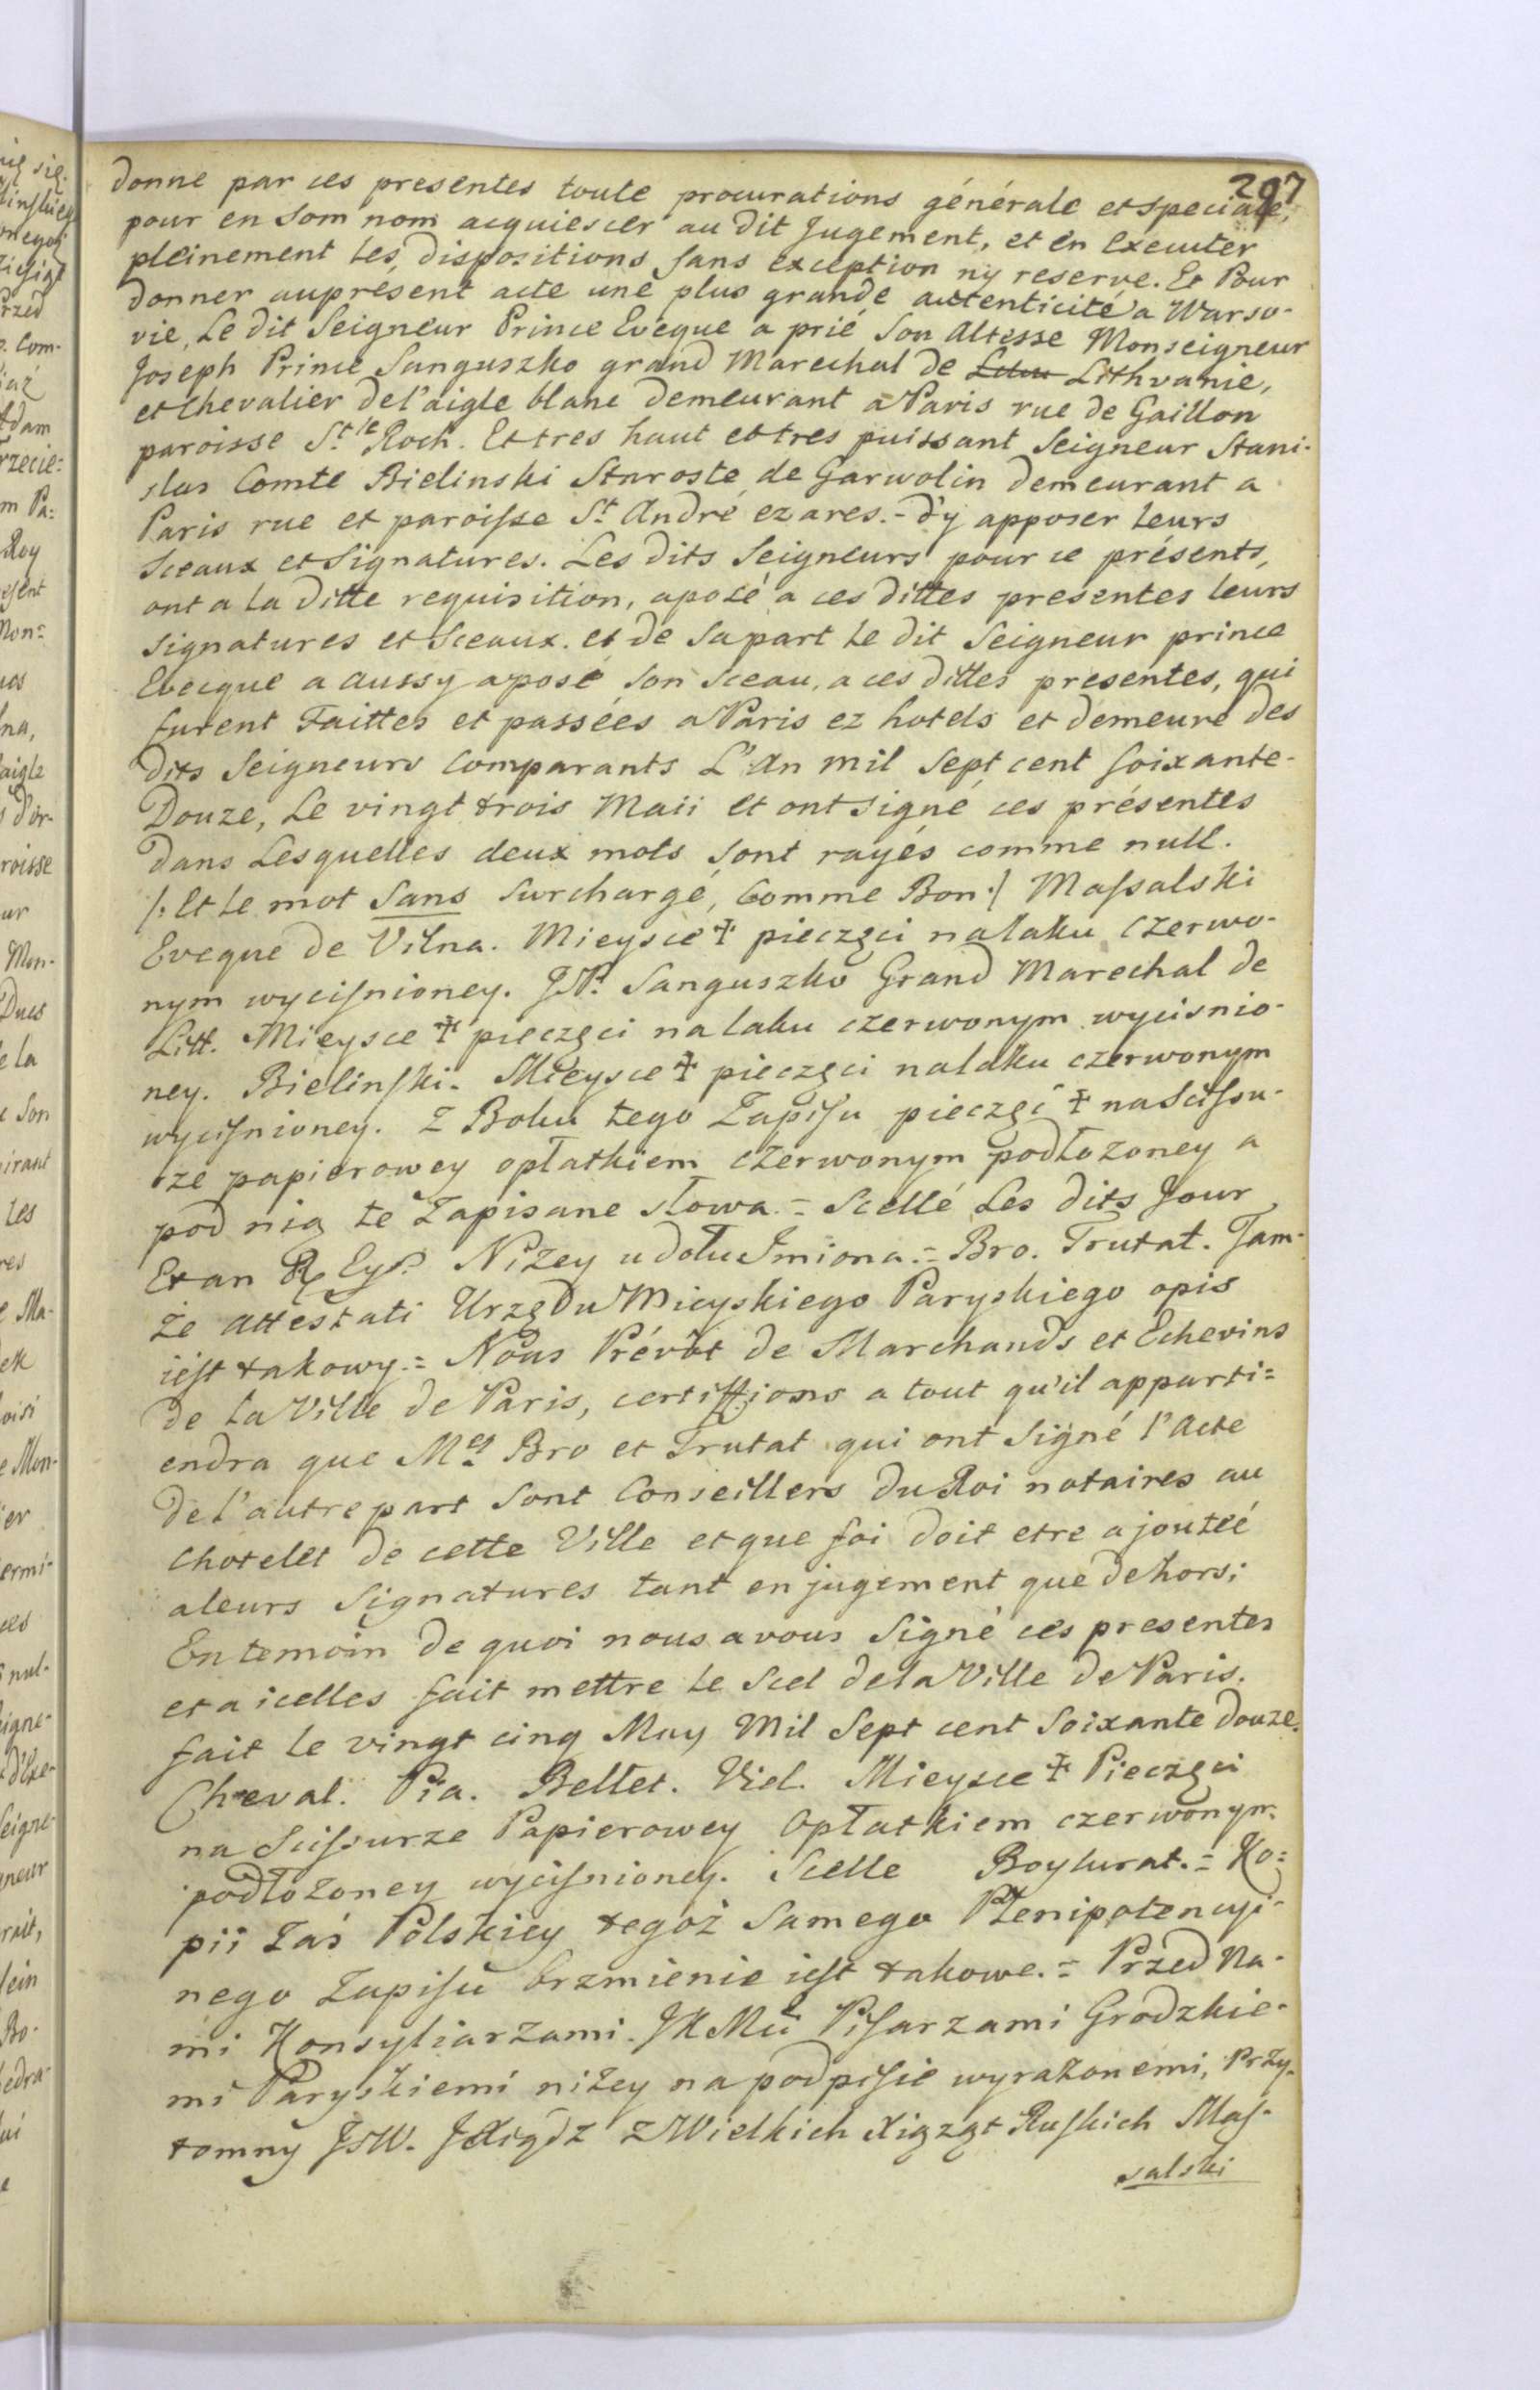 297
donne par ces presentes toute procurations générale et speciale,
pour en som nom acquiescer au dit Jugement, et en executer
pleinement les dispositions sans exception ny reserve. Et Pour
donner aupresent acte une plus grande autenticité a Warso-
vie, Le dit Seigneur Prince Eveque a prié Son Altesse Monseigneur
Joseph Prince Sanguszko grand Marechal de Lithvanie,
et Chevalier de l'aigle blanc demeurant a Paris rue de Gaillon
paroisse St. le Roch. Et tres haut et tres puissant Seigneur Stani-
slas Comte Bielinski Staroste de Garwolin demeurant a
Paris rue et paroisse St. André ez ares. - d'y apposer leurs
Sceaux et Signatures. Les dits Seigneurs pour ce présents,
ont a la ditte requisition, aposé a ces dittes presentes leurs
signatures et Sceaux. et de sa part le dit Seigneur prince
Evecque a aussy aposé son sceau, a ces dittes presentes, qui
furent Faittes et passées a Paris ez hotels et demeure des
dits Seigneurs Comparants L'An mil sept cent soixante-
Douze, Le vingt trois Maii et ont signé ces présentes
dans Lesquelles deux mots sont rayés comme null.
/: Et le mot Sans surchargé, Comme Bon :/ Massalski
Eveque de Vilna. Mieysce ✝ pieczęci na laku czerwo-
nym wyciśnioney. J.P. Sanguszko Grand Marechal de
Litt. Mieysce ✝ pieczęci na laku czerwonym wycisnio-
ney. Bielinski. Mieysce ✝ pieczęci na laku czerwonym
wyciśnioney. Z Boku tego Zapisu pieczęć ✝ na Scissu-
rze papierowey opłatkiem czerwonym podłożoney a
pod nią te Zapisane słowa. = Scellé Les dits Jour
Et an Niżey u dołu Imiona. = Bro. Trutat. Tam-
że attestati Urzędu Mieyskiego Paryskiego opis
iest takowy. = Nous Prévôt de Marchands et Echevins
de la Ville de Paris, certiffions a tout qu'il apparti=
endra que Mes. Bro et Trutat qui ont signé l'Acte
de l'autre part sont Conseillers du Roi notaires au
chotelet de cette Ville et que foi doit etre ajoutéé
a leurs Signatures tant en jugement que dehors;
En temoin de quoi nous avous signé ces presentes
et a icelles fait mettre le Scel de la Ville de Paris.
fait le vingt cinq May Mil Sept cent Soixante douze.
Cheval. Pia. Bellet. Viel. Mieysce ✝ Pieczęci
na Scissurze Papierowey Opłatkiem czerwonym
podłożoney wyciśnioney. Scelle Boylurat. = Ko=
pii Zaś Polskiey tegoż samego Plenipotencyi-
nego Zapisu brzmienie iest takowe. = Przed Na-
mi Konsyliarzami JKMci Pisarzami Grodzkie-
mi Paryskiemi niżey na podpisie wyrażonemi, Przy-
tomny JśW. JXiądz z Wielkich Xiążąt Ruskich Mas-
salski